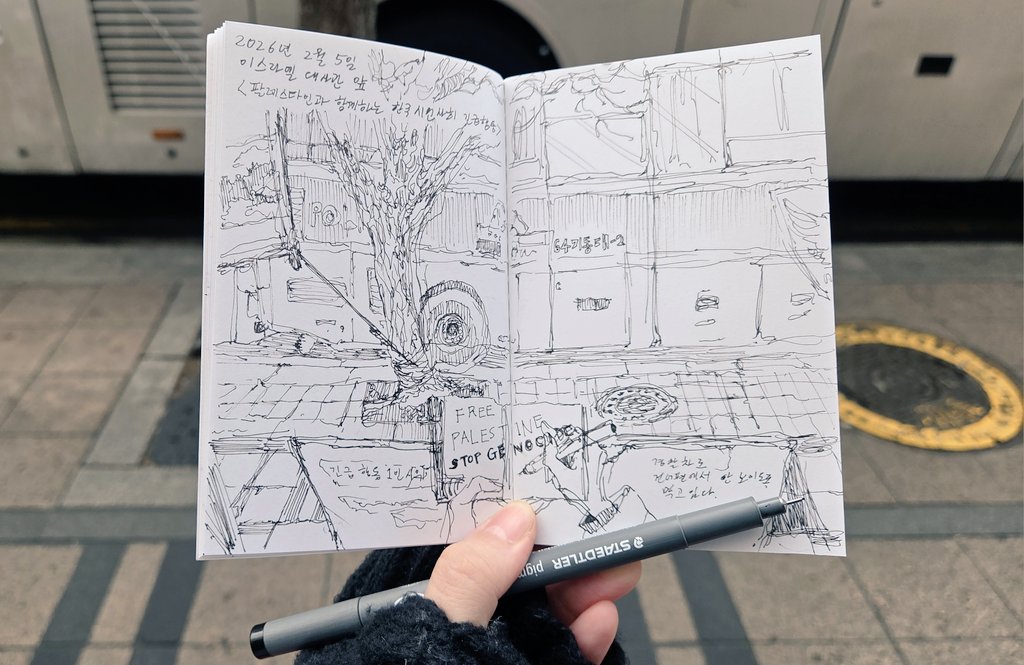 2026년 2월 5일
이스라엘 대사관 앞
<팔레스타인과 함께하는 한국 시민사회 긴급행동>
64기동대-2
FREE
PALESTINE
STOP GENOCIDE
긴급 행동 1인 시위
경찰 차로
건너편에서 안 보이도록
막고 있다.
STAEDTLER pigm